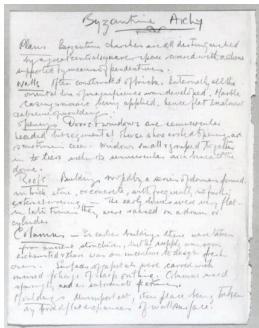 Byzantine Archy
Plans Byzantine churches are all distinguished
by a great central square space covered with a dome
supported by means of pendentives.
Walls Often constructed of brick. Internally all the
oriental love of magnificence was developed, Marble
casing & mosaic being applied, hence flat
mouldings.
Openings Doors & windows are semicircular
headed but segmental & horse shoe arched openings are
sometimes seen. Windows small & grouped together
in tiers within the semicircular arch beneath the
dome.
Roofs Buildings roofed by a series of domes formed
in brick, stone, or concrete, with frequently no further
external covering. The early domes were very flat.
in later times they were raised on a drum or
cylinder.
Columns — In earlier buildings these were taken
from ancient structures, but the supply
exhausted there was an incentive to design fresh
ones. Surfaces of capitals were carved with
incised foliage of sharp outline. Columns used
sparingly, and as internal features.
Mouldings unimportant, their place being taken
by broad flat expanses of wall surface.